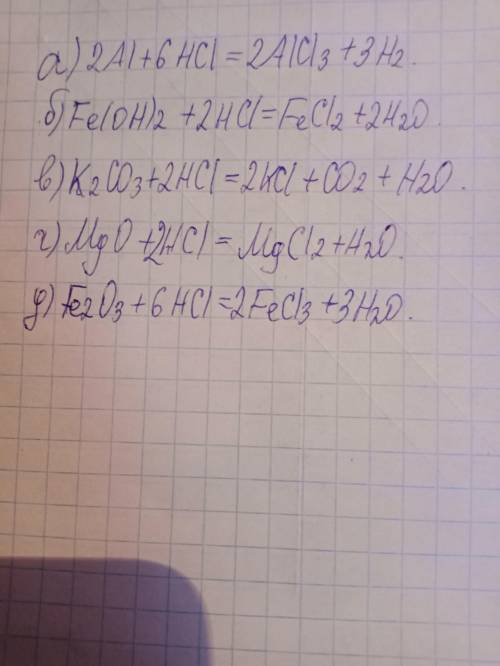 а) 2Al + 6HCl = 2AlCl3 + 3H2.
б) Fe(OH)2 + 2HCl = FeCl2 + 2H2O.
в) K2CO3 + 2HCl = 2KCl + CO2 + H2O.
г) MgO + 2HCl = MgCl2 + H2O.
д) Fe2O3 + 6HCl = 2FeCl3 + 3H2O.